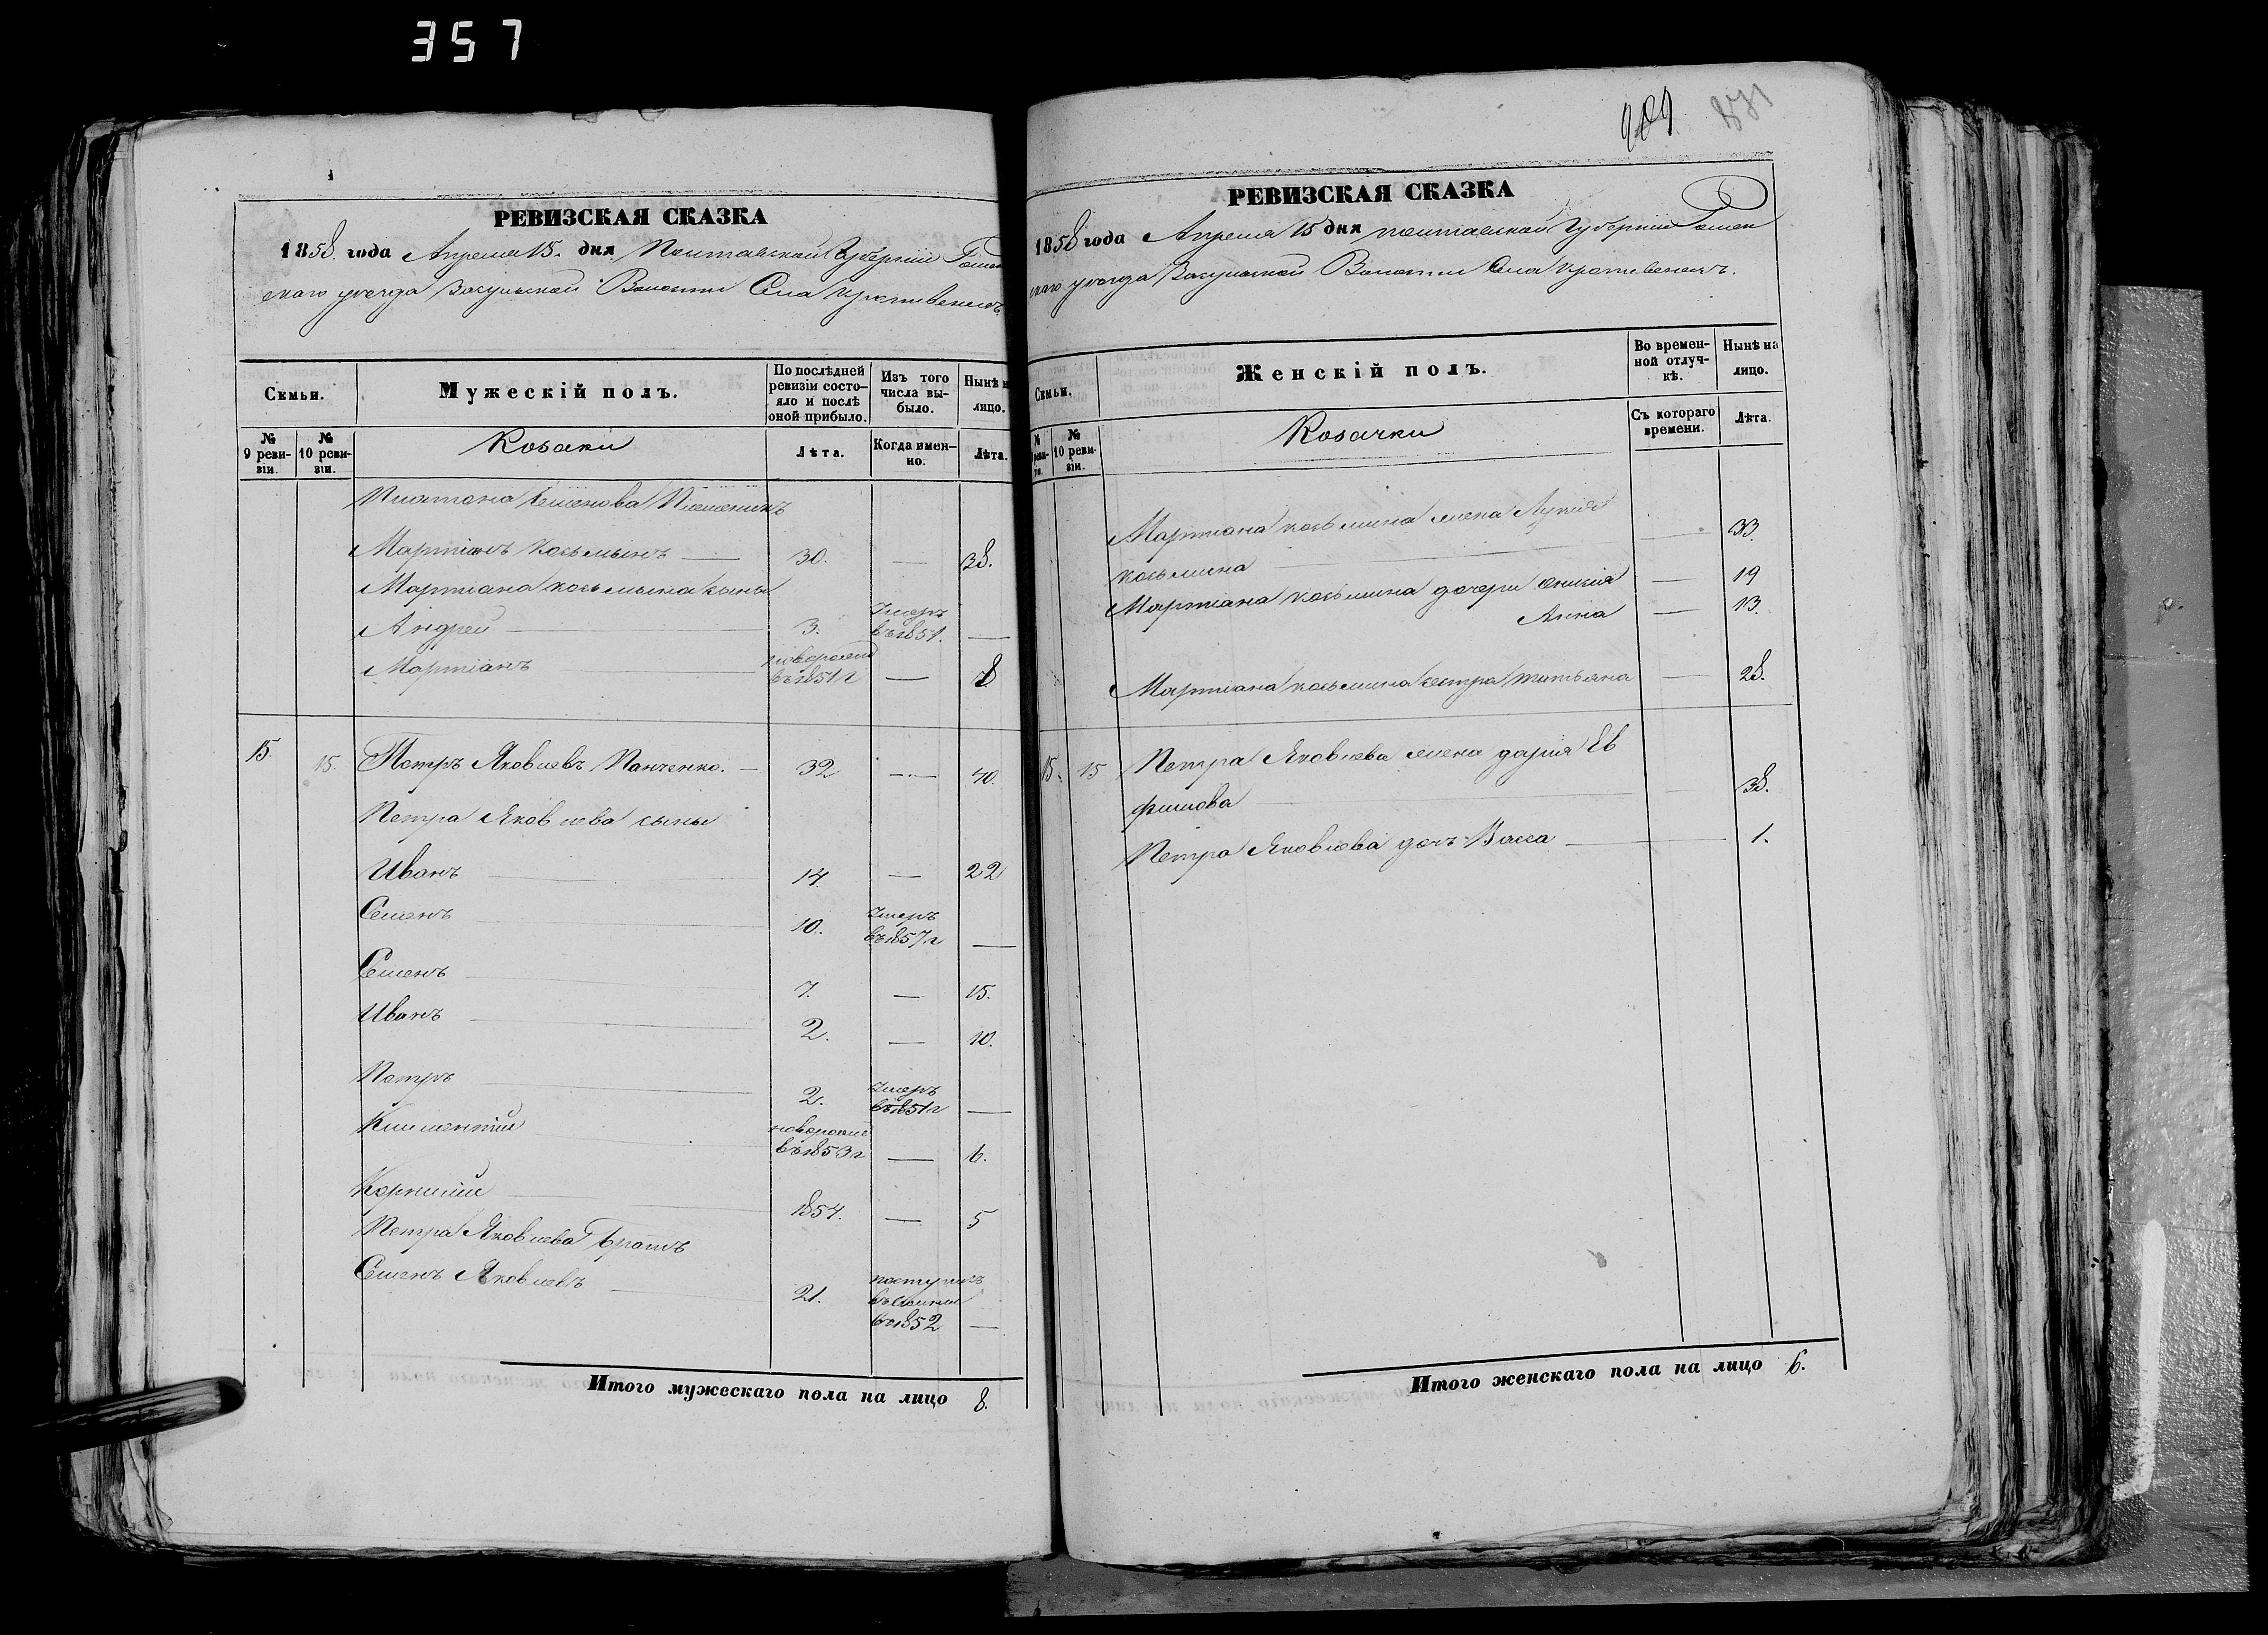 357
РЕВИЗСКАЯ СКАЗКА
1858. года Апреля 15. дня Полтавской Губерніи Ромен
скаго уезда Села
Семьи.
Мужескій полъ.
По послѣдней ревизіи состо-
яло и послѣ
оной прибыло.
Изъ того
числа вы-
было.
Нынѣ н
лицо.
№
9 реви-
зіи.
№
10 реви-
зіи.
Козаки
Лѣта.
Когда имен-
но.
Лѣта.
Платона Семенова Племеникъ
Мартіянъ Козьминъ 30. — 38.
Мартіана Козьмина сыны
Андрей 3. Умеръ въ 1851. —
Мартіанъ новорожд въ 1851 г — 8
15. 15. Петръ Яковлевъ Панченко. — 32 — 40.
Петра Яковлева сыны
Иванъ 14. — 22
Семенъ 10. Умеръ въ 1857 г —
Семенъ 7. — 15.
Иванъ 2. — 10.
Петръ 2. Умеръ въ 1851 г —
Климентій новорожд въ 1853 г — 6.
Корнилій 1854. — 5
Петра Яковлева братъ
Семенъ Яковлевъ 21. поступилъ въ 1852 —
Итого мужескаго пола на лицо 8.
909
РЕВИЗСКАЯ СКАЗКА
1858 года Апреля 15 дня Полтавской Губерніи Ромен
скаго уезда Села
Семьи.
Женскій полъ.
Во времен-
ной отлуч-
кѣ.
Нынѣ на
лицо.
№
10 реви-
зіи.
Козачки
Съ котораго
времени.
Лѣта.
Мартіана Козьмина жена
Козьмина — 33.
Мартіана Козьмина дочери — 19
Анна — 13.
Мартіана Козьмина сестра Татьяна — 28.
15. 15 Петра Яковлева жена Дарія Ев
фимова — 38.
Петра Яковлева дочь Васса — 1.
Итого женскаго пола на лицо 6.